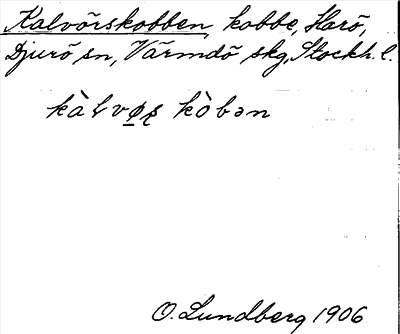 Kalvörskobben, kobbe, Harö,
Djurö sn, Värmdö skg, Stockh. l.
kàlvø̱ʂ kòbən
O. Lundberg 1906